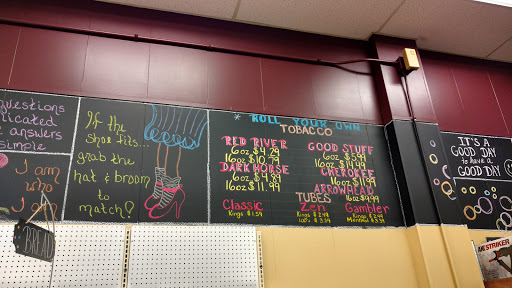 Questions
answers
simple
I am
who
I am
BREAD
If the
shoe fits...
grab the
hat & broom
to
match?
* ROLL YOUR OWN
TOBACCO
RED RIVER
6oz $4.89
16oz $10.79
DARK HORSE
6oz $4.89
16oz $11.99
Classic
Kings $1.59
GOOD STUFF
6oz $5.99
16oz $14.99
CHEROKEE
16oz $11.99
ARROWHEAD
16oz $9.99
TUBES
Zen
Kings $2.49
Gambler
Kings $2.49
IT'S A
GOOD DAY
to have a
GOOD DAY
STRIKER